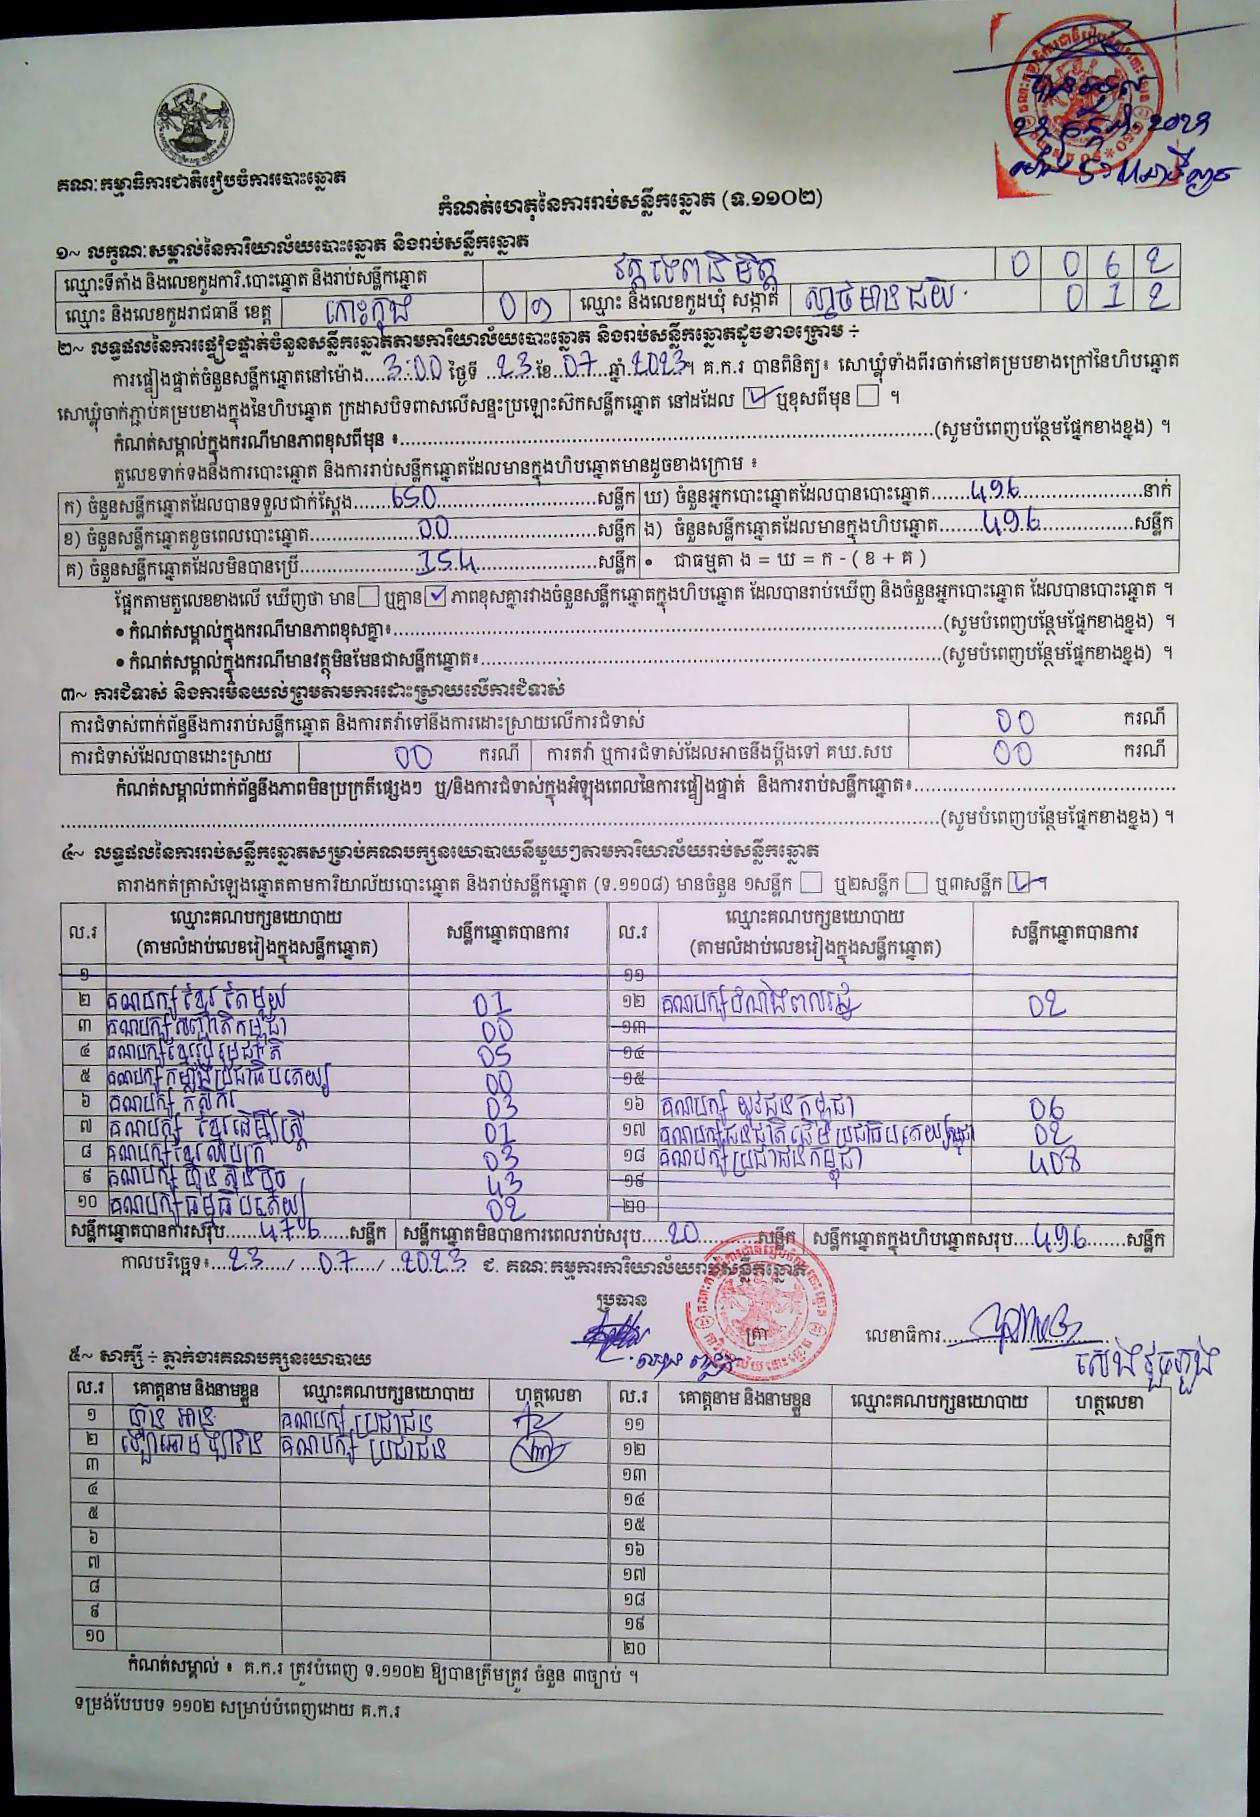 គណៈកម្មាធិការជាតិរៀបចំការបោះឆ្នោត
កំណត់ហេតុនៃការរាប់សន្លឹកឆ្នោត (ទ.១១០២)
១~ លក្ខណៈសម្គាល់នៃការិយាល័យបោះឆ្នោត និងរាប់សន្លឹកឆ្នោត
ឈ្មោះទីតាំង និងលេខកូដការិ.បោះឆ្នោត និងរាប់សន្លឹកឆ្នោត វត្តទេពនិមិត្ត 0 0 6 2
ឈ្មោះ និងលេខកូដរាជធានី ខេត្ត កោះកុង 0 ១ ឈ្មោះ និងលេខកូដឃុំ សង្កាត់ ស្មាច់មានជ័យ 0 1 2
២~ លទ្ធផលនៃការផ្ទៀងផ្ទាត់ចំនួនសន្លឹកឆ្នោតតាមការិយាល័យបោះឆ្នោត និងរាប់សន្លឹកឆ្នោតដូចខាងក្រោម ÷
ការផ្ទៀងផ្ទាត់ចំនួនសន្លឹកឆ្នោតនៅម៉ោង 3:00 ថ្ងៃទី 23 ខែ 07 ឆ្នាំ 2023។ គ.ក.រ បានពិនិត្យ៖ សោឃ្លុំទាំងពីរចាក់នៅគម្របខាងក្រៅនៃហិបឆ្នោត
សោឃ្លុំចាក់ភ្ជាប់គម្របខាងក្នុងនៃហិបឆ្នោត ក្រដាសបិទពាសលើសន្ទះប្រឡោះស៊កសន្លឹកឆ្នោត នៅដដែល ☑ ឬខុសពីមុន ☐ ។
កំណត់សម្គាល់ក្នុងករណីមានភាពខុសពីមុន ៖ (សូមបំពេញបន្ថែមផ្នែកខាងខ្នង) ។
តួលេខទាក់ទងនឹងការបោះឆ្នោត និងការរាប់សន្លឹកឆ្នោតដែលមានក្នុងហិបឆ្នោតមានដូចខាងក្រោម ៖
ក) ចំនួនសន្លឹកឆ្នោតដែលបានទទួលជាក់ស្តែង 650 សន្លឹក ឃ) ចំនួនអ្នកបោះឆ្នោតដែលបានបោះឆ្នោត 496 នាក់
ខ) ចំនួនសន្លឹកឆ្នោតខូចពេលបោះឆ្នោត 00 សន្លឹក ង) ចំនួនសន្លឹកឆ្នោតដែលមានក្នុងហិបឆ្នោត 496 សន្លឹក
គ) ចំនួនសន្លឹកឆ្នោតដែលមិនបានប្រើ 154 សន្លឹក • ជាធម្មតា ង = ឃ = ក - ( ខ + គ )
ផ្អែកតាមតួលេខខាងលើ ឃើញថា មាន ☐ ឬគ្មាន ☑ ភាពខុសគ្នារវាងចំនួនសន្លឹកឆ្នោតក្នុងហិបឆ្នោត ដែលបានរាប់ឃើញ និងចំនួនអ្នកបោះឆ្នោត ដែលបានបោះឆ្នោត ។
• កំណត់សម្គាល់ក្នុងករណីមានភាពខុសគ្នា៖ (សូមបំពេញបន្ថែមផ្នែកខាងខ្នង) ។
• កំណត់សម្គាល់ក្នុងករណីមានវត្ថុមិនមែនជាសន្លឹកឆ្នោត៖ (សូមបំពេញបន្ថែមផ្នែកខាងខ្នង) ។
៣~ ការជំទាស់ និងការមិនយល់ព្រមតាមការដោះស្រាយលើការជំទាស់
ការជំទាស់ពាក់ព័ន្ធនឹងការរាប់សន្លឹកឆ្នោត និងការតវ៉ាទៅនឹងការដោះស្រាយលើការជំទាស់ 00 ករណី
ការជំទាស់ដែលបានដោះស្រាយ 00 ករណី ការតវ៉ា ឬការជំទាស់ដែលអាចនឹងប្តឹងទៅ គឃ.សប 00 ករណី
កំណត់សម្គាល់ពាក់ព័ន្ធនឹងភាពមិនប្រក្រតីផ្សេងៗ ឬ/និងការជំទាស់ក្នុងអំឡុងពេលនៃការផ្ទៀងផ្ទាត់ និងការរាប់សន្លឹកឆ្នោត៖
(សូមបំពេញបន្ថែមផ្នែកខាងខ្នង) ។
៤~ លទ្ធផលនៃការរាប់សន្លឹកឆ្នោតសម្រាប់គណបក្សនយោបាយនីមួយៗតាមការិយាល័យរាប់សន្លឹកឆ្នោត
តារាងកត់ត្រាសំឡេងឆ្នោតតាមការិយាល័យបោះឆ្នោត និងរាប់សន្លឹកឆ្នោត (ទ.១១០៨) មានចំនួន ១សន្លឹក ☐ ឬ២សន្លឹក ☐ ឬ៣សន្លឹក ☑ ។
ល.រ ឈ្មោះគណបក្សនយោបាយ (តាមលំដាប់លេខរៀងក្នុងសន្លឹកឆ្នោត) សន្លឹកឆ្នោតបានការ ល.រ ឈ្មោះគណបក្សនយោបាយ (តាមលំដាប់លេខរៀងក្នុងសន្លឹកឆ្នោត) សន្លឹកឆ្នោតបានការ
១ ១១
២ គណបក្សខ្មែរតែមួយ 01 ១២ គណបក្សដំណាងពលរដ្ឋ 02
៣ គណបក្សសញ្ជាតិកម្ពុជា 00 ១៣
៤ គណបក្សខ្មែររួបរួមជាតិ 05 ១៤
៥ គណបក្សកម្លាំងប្រជាធិបតេយ្យ 00 ១៥
៦ គណបក្សកសិករ 03 ១៦ គណបក្សយុវជនកម្ពុជា 06
៧ គណបក្សខ្មែរដើម្បីស្ត្រី 01 ១៧ គណបក្សជនជាតិដើមប្រជាធិបតេយ្យកម្ពុជា 02
៨ គណបក្សខ្មែរឈប់ក្រ 03 ១៨ គណបក្សប្រជាជនកម្ពុជា 408
៩ គណបក្សហ៊្វុនស៊ិនប៉ិច 43 ១៩
១០ គណបក្សធម្មាធិបតេយ្យ 02 ២០
សន្លឹកឆ្នោតបានការសរុប 476 សន្លឹក សន្លឹកឆ្នោតមិនបានការពេលរាប់សរុប 20 សន្លឹក សន្លឹកឆ្នោតក្នុងហិបឆ្នោតសរុប 496 សន្លឹក
កាលបរិច្ឆេទ៖ 23 / 07 / 2023 ជ. គណៈកម្មការការិយាល័យរាប់សន្លឹកឆ្នោត
ប្រធាន
ត្រា លេខាធិការ
៥~ សាក្សី ÷ ភ្នាក់ងារគណបក្សនយោបាយ
ល.រ គោត្តនាម និងនាមខ្លួន ឈ្មោះគណបក្សនយោបាយ ហត្ថលេខា ល.រ គោត្តនាម និងនាមខ្លួន ឈ្មោះគណបក្សនយោបាយ ហត្ថលេខា
១ គណបក្ស ប្រជាជន ១១
២ គណបក្ស ប្រជាជន ១២
៣ ១៣
៤ ១៤
៥ ១៥
៦ ១៦
៧ ១៧
៨ ១៨
៩ ១៩
១០ ២០
កំណត់សម្គាល់ ៖ គ.ក.រ ត្រូវបំពេញ ទ.១១០២ ឱ្យបានត្រឹមត្រូវ ចំនួន ៣ច្បាប់ ។
ទម្រង់បែបបទ ១១០២ សម្រាប់បំពេញដោយ គ.ក.រ